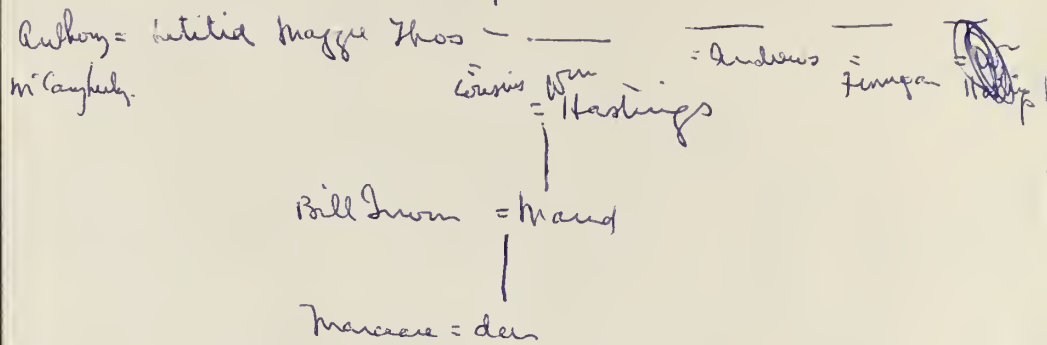 Anthony = Letitia Maggie Thos - = Andrews = Finnigan
McCaugherty. cousins Wm = Hastings
Bill Irwin = Maud
= dau